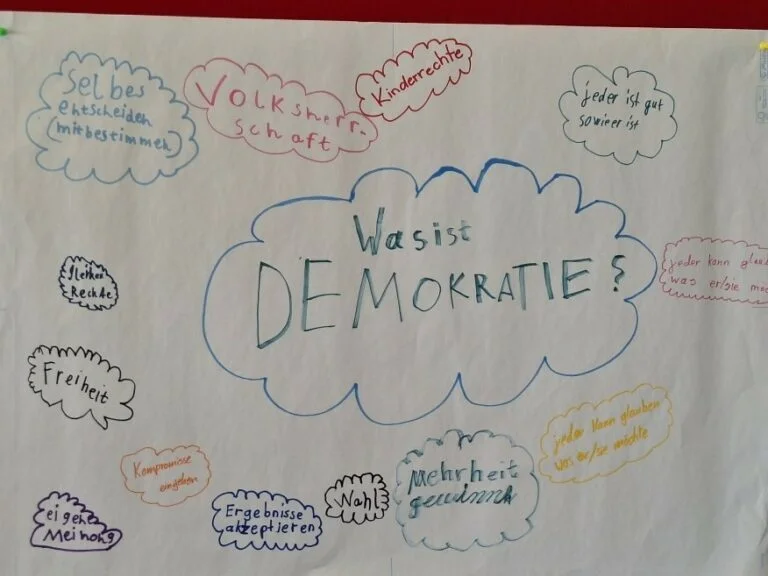 Selbes
entscheiden
(mitbestimmen)
Volksherr-
schaft
Kinderrechte
jeder ist gut
sowieer ist
Was ist
DEMOKRATIE?
jeder kann glaub
was er/sie mö
Rechte
Freiheit
jeder kann glauben
was er/sie möchte
Kompromisse
eingehen
Mehrheit
Wahl
Ergebnisse
akzeptieren
eigene
Meinong